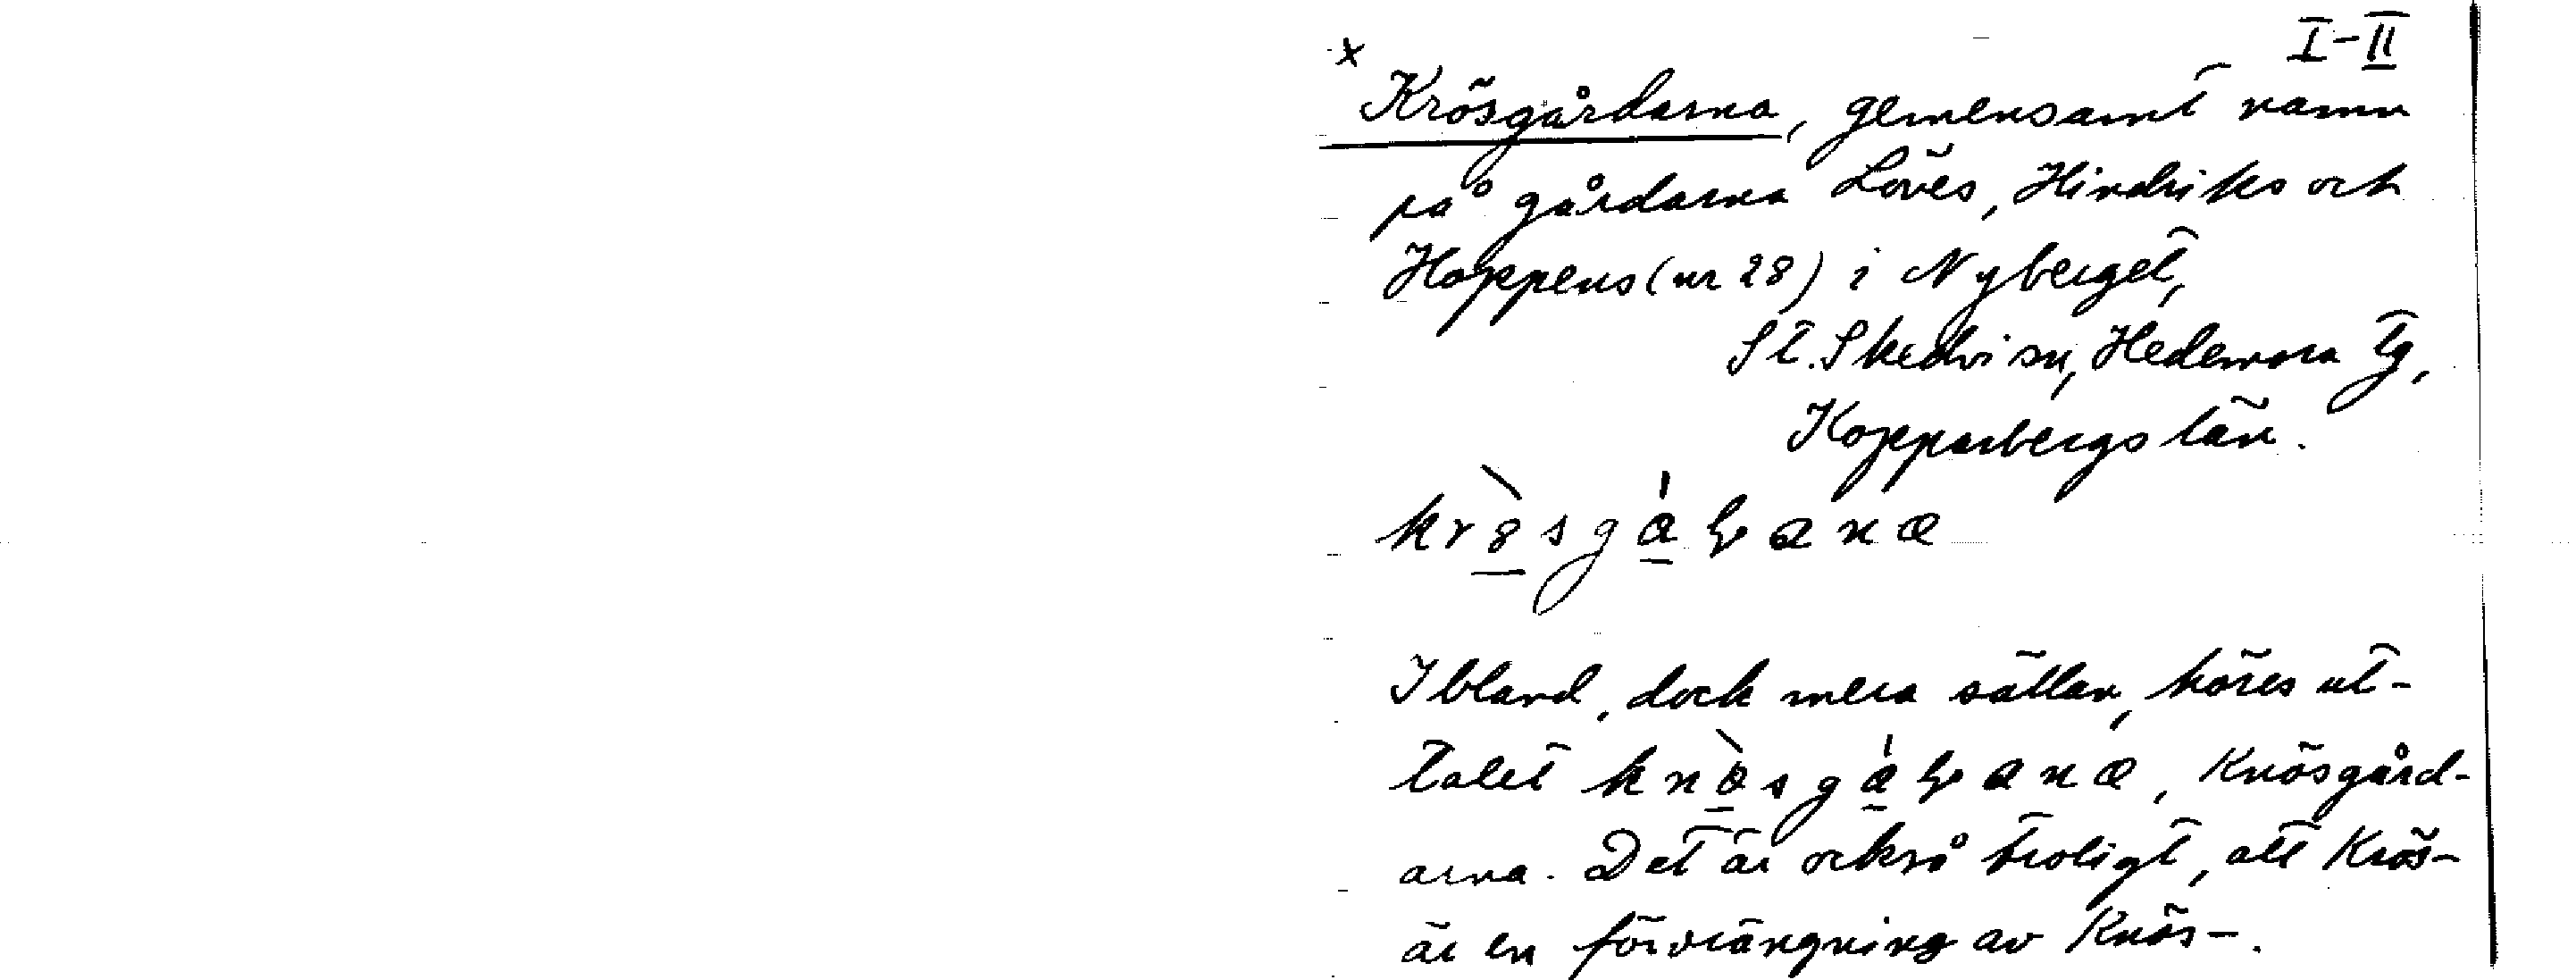 I-II
x
Krösgårdarna, gemensamt namn
på gårdarna Löves, Hindriks och
Hoppens (nr 28) i Nyberget,
St. Skedvi sn, Hedemora tg,
Kopparbergs län.
Ibland, dock mera sällan, höres ut-
talet, Knösgård-
arna. Det är också troligt, att Krös-
är en förvrängning av Knös-.